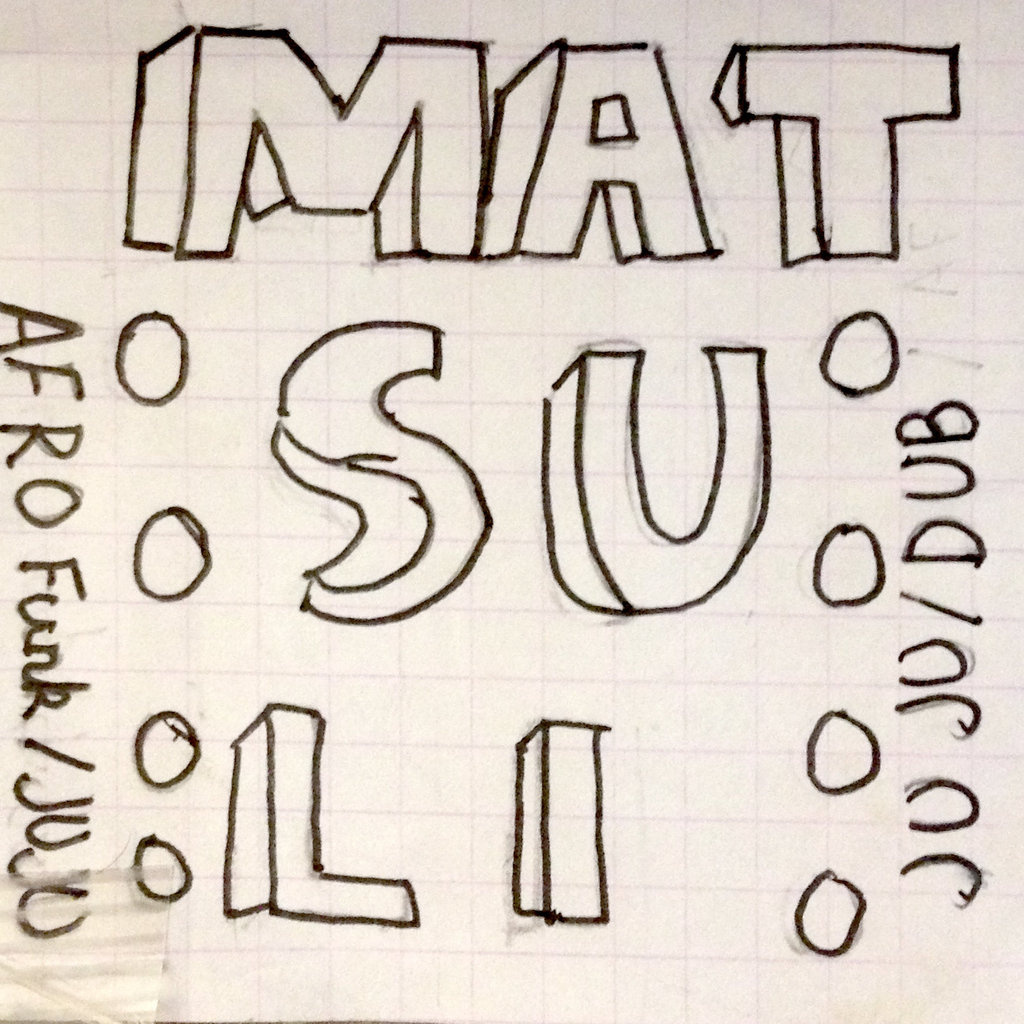 MAT
SU
LI
AFRO Funk/JUJU
JU JU/DUB/